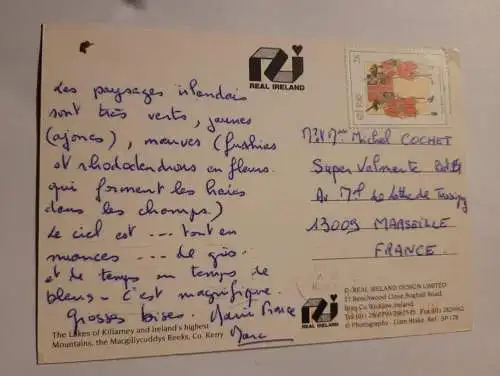 Les paysages irlandais
sont très verts, jaunes
(ajoncs), mauves (fushias
et rhododendrons en fleurs
qui forment les haies
dans les champs.)
Le ciel est --- tout en
nuances --- de gris
et de temps en temps de
bleus - c'est magnifique.
Grosses bises. Marie France
Marc
REAL IRELAND
Michel COCHET
Super Valmante
Av Mal De Lattre de Tassigny
13009 MARSEILLE
FRANCE
The Lakes of Killarney and Ireland's highest
Mountains, the Macgillycuddys Reeks, Co. Kerry
REAL IRELAND
© REAL IRELAND DESIGN LIMITED
27 Beechwood Close, Boghall Road,
Bray, Co. Wicklow, Ireland.
© Photography - Liam Blake. Ref. SP 178